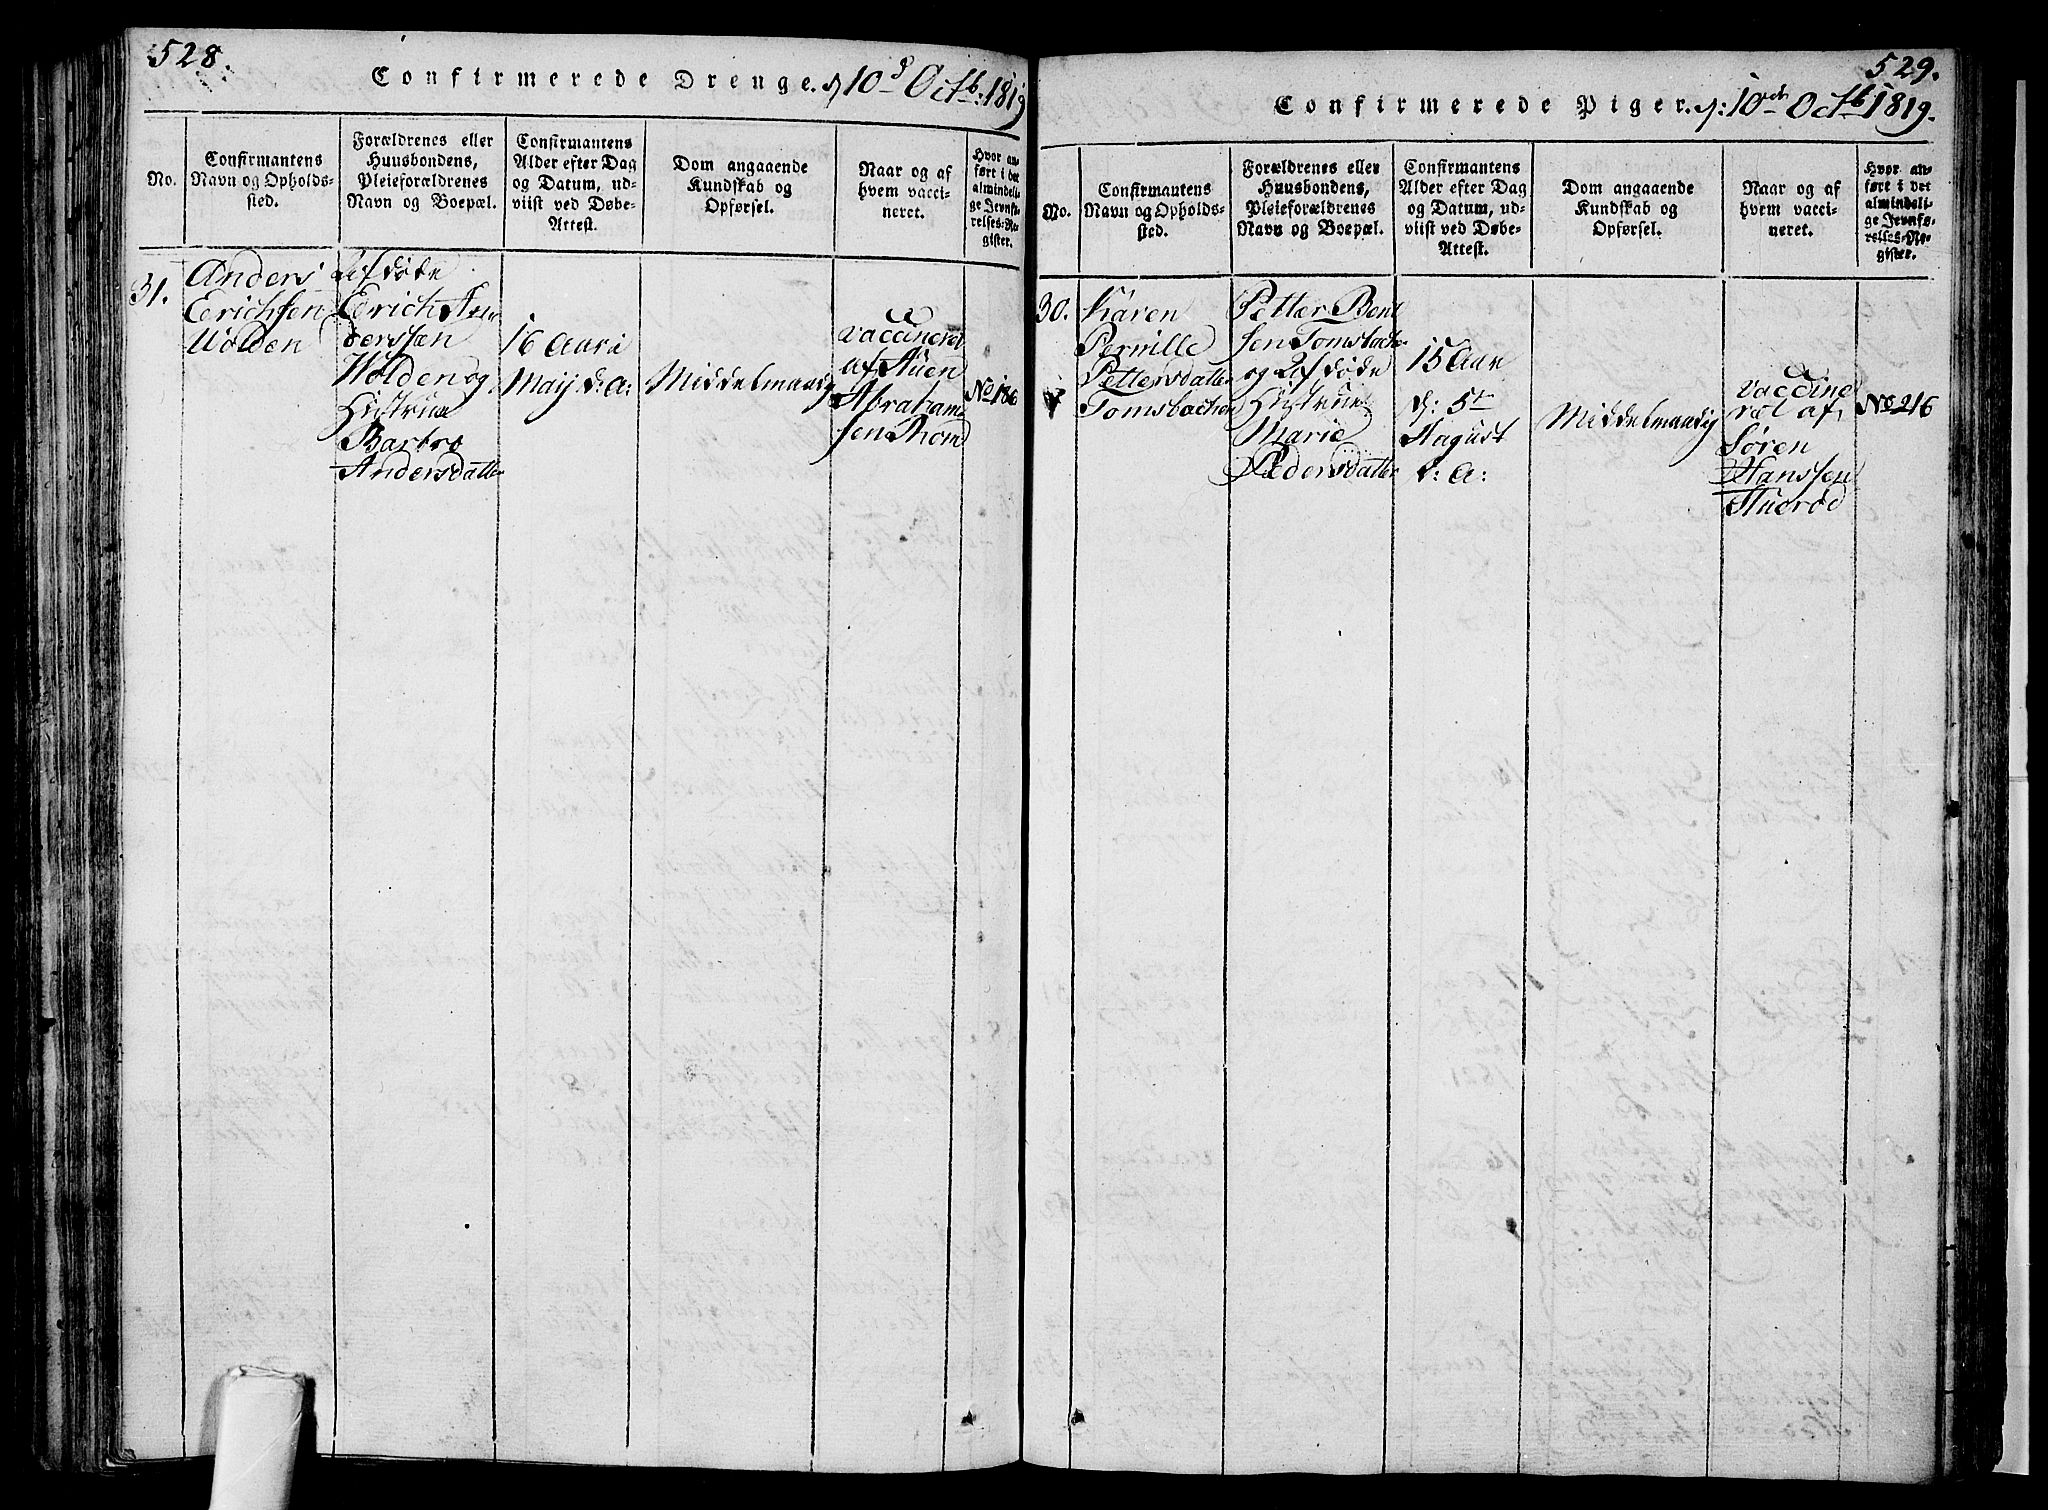 528.
Confirmerede Drenge. d 10d Octb: 1819
No.
Confirmantens
Navn og Opholds-
sted.
Forældrenes eller
Huusbondens,
Pleieforældrenes
Navn og Boepæl.
Confirmantens
Alder efter Dag
og Datum, ud-
viist ved Døbe-
Attest.
Dom angaaende
Kundskab og
Opførsel.
Naar og af
hvem vacci-
neret.
Hvor an-
ført i det
almindeli-
ge Jevnfø-
relses-Re-
gister.
31.
Anders
Erichsen
Wolden
Afdøde
Erich An
derssen
Wolden og
Hustrue
Barbro
Andersdatter
16 Aar i
Maij d: A:
Middelmaadig
vaccineret
af Auen
Abraham
sen Moe
No 186
529.
Confirmerede Piger. d: 10de Octb 1819.
No.
Confirmantens
Navn og Opholds-
sted.
Forældrenes eller
Huusbondens,
Pleieforældrenes
Navn og Boepæl.
Confirmantens
Alder efter Dag
og Datum, ud-
viist ved Døbe-
Attest.
Dom angaaende
Kundskab og
Opførsel.
Naar og af
hvem vacci-
neret.
Hvor an-
ført i det
almindeli-
ge Jevnfø-
relses-Re-
gister.
30.
Karen
Pernille
Pettersdatter
Tomsbachen
Petter Bent
sen Tomsbachen
og Afdøde
Hustrue
Marie
Pedersdatter
15 Aar
d: 5te
August
d: A:
Middelmaadig
vaccine
ret af
Søren
Hanssen
Stuerød
No 216